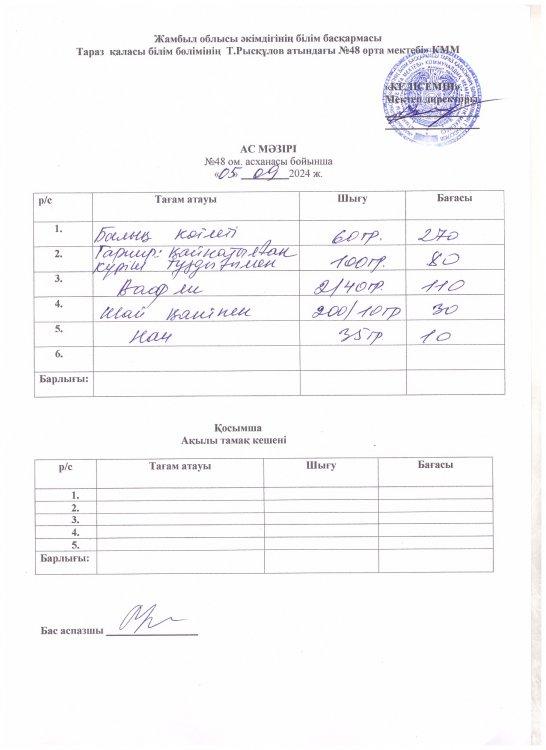 Жамбыл облысы әкімдігінің білім басқармасы
Тараз қаласы білім бөлімінің Т.Рысқұлов атындағы №48 орта мектебі» КММ
«КЕЛІСЕМІН»
Мектеп директоры
АС МӘЗІРІ
№48 ом. асханасы бойынша
«05» 09 2024 ж.
р/с Тағам атауы Шығу Бағасы
1. Балық котлеті 60гр. 270
2. Гарнир: қайнатылған
күріш тұздығымен 100гр. 80
3. Вафли 2/40гр. 110
4. Шай қантпен 200/10гр 30
5. Нан 35гр 10
6.
Барлығы:
Қосымша
Ақылы тамақ кешені
р/с Тағам атауы Шығу Бағасы
1.
2.
3.
4.
5.
Барлығы:
Бас аспазшы